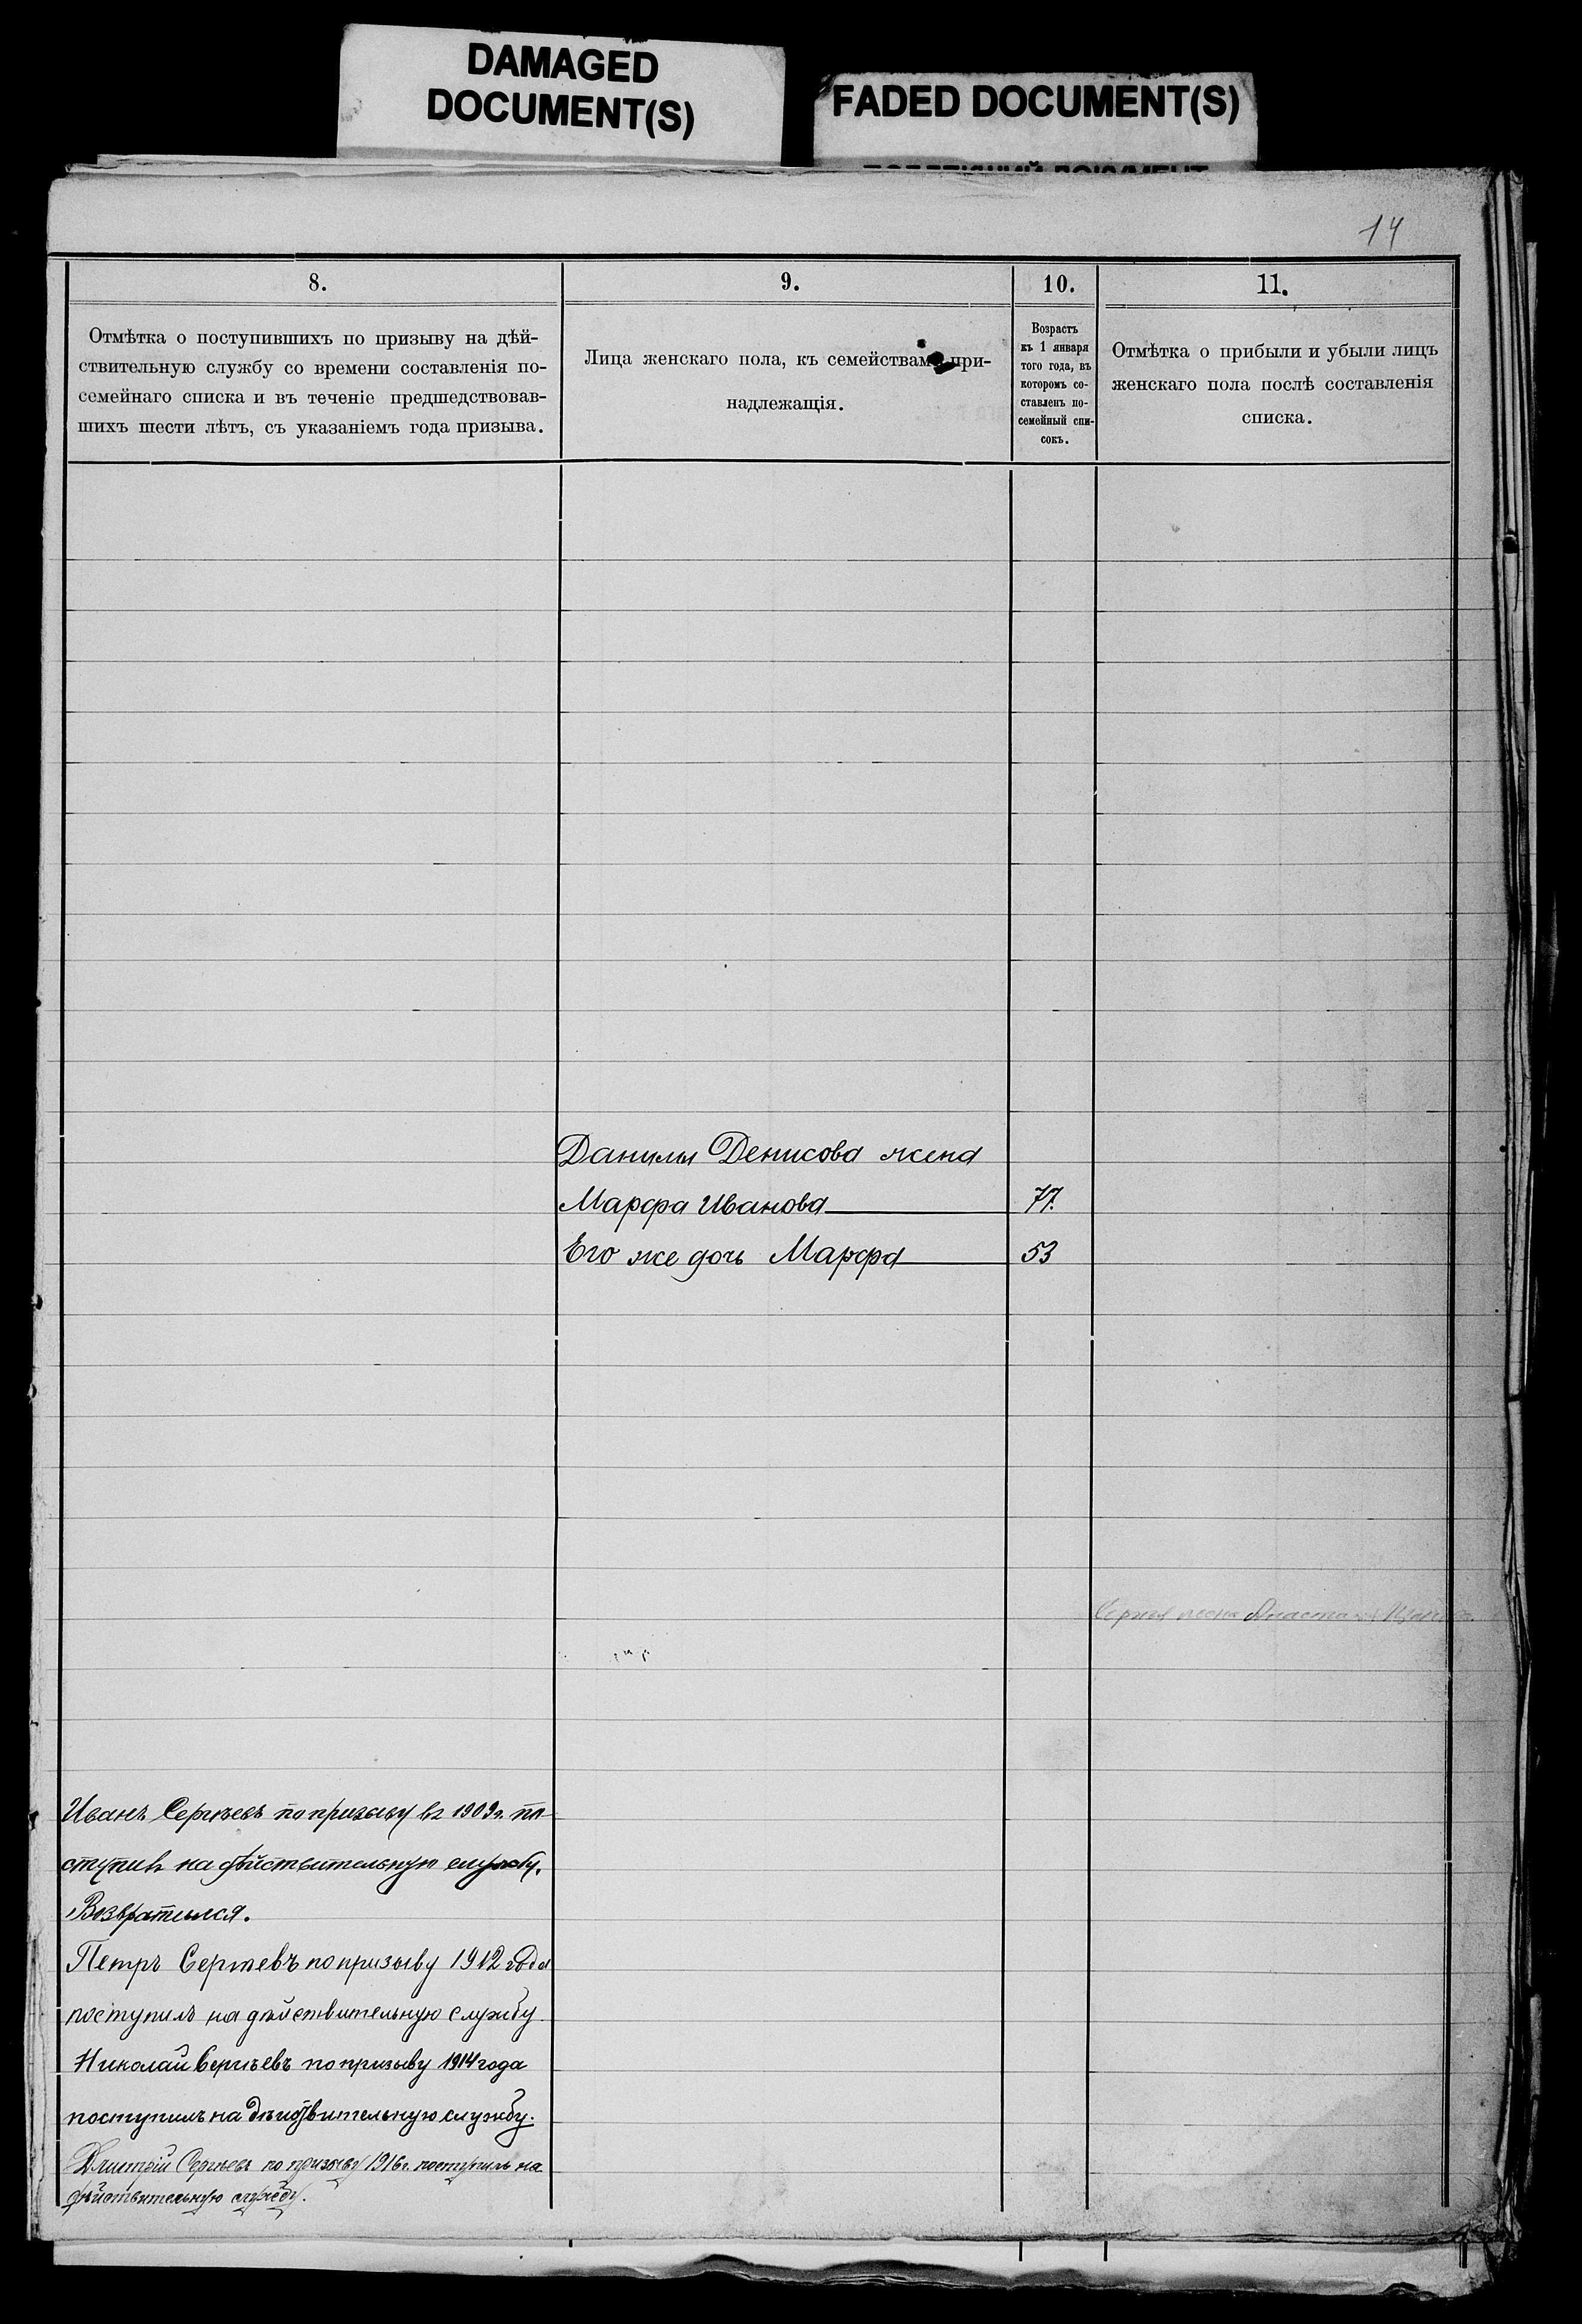 DAMAGED
DOCUMENT(S)
FADED DOCUMENT(S)
14
8.
9.
10.
11.
Отмѣтка о поступившихъ по призыву на дѣй-
ствительную службу со времени составленія по-
семейнаго списка и въ теченіе предшедствовав-
шихъ шести лѣтъ, съ указаніемъ года призыва.
Лица женскаго пола, къ семействамъ при-
надлежащія.
Возрастъ
къ 1 января
того года, въ
которомъ со-
ставленъ по-
семейный спи-
сокъ.
Отмѣтка о прибыли и убыли лицъ
женскаго пола послѣ составленія
списка.
Данилы Денисова жена
Марфа Иванова 77.
Его же дочь Марфа 53
Сергея жена
Иванъ Сергѣевъ по призыву въ 1909 г. по-
ступилъ на дѣйствительную службу.
Возвратился.
Петръ Сергѣевъ по призыву 1912 года
поступилъ на дѣйствительную службу.
Николай Сергѣевъ по призыву 1914 года
поступилъ на дѣйствительную службу.
Дмитрій Сергѣевъ по призыву 1916 г. поступилъ на
дѣйствительную службу.